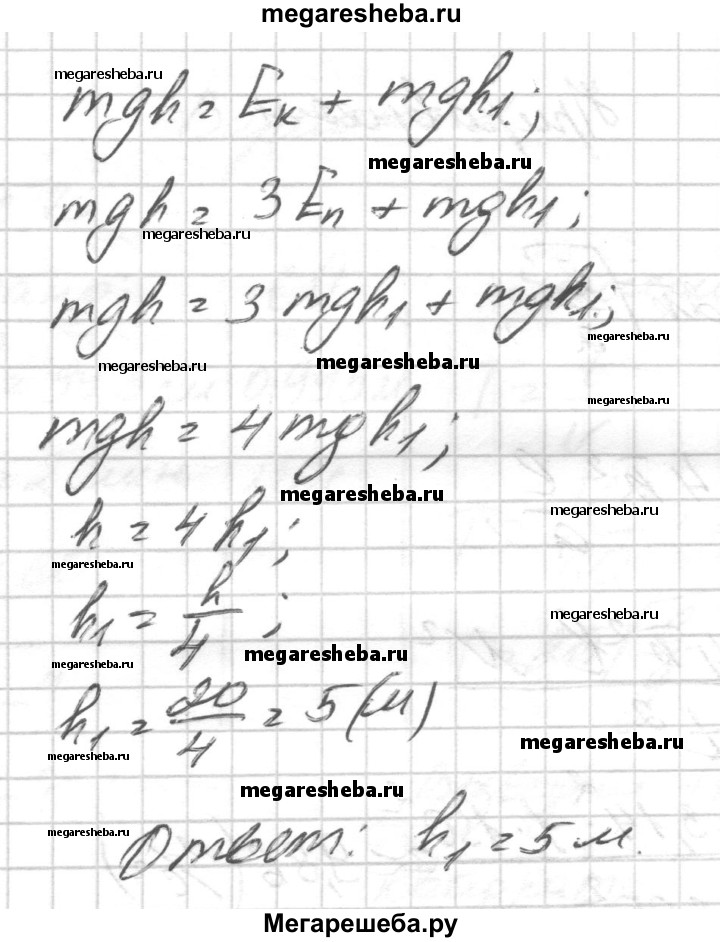 megaresheba.ru
megaresheba.ru
mgh = Eк + mgh₁;
megaresheba.ru
mgh = 3Eп + mgh₁;
megaresheba.ru
mgh = 3mgh₁ + mgh₁;
megaresheba.ru
megaresheba.ru
megaresheba.ru
megaresheba.ru
mgh = 4mgh₁;
megaresheba.ru
h = 4h₁;
megaresheba.ru
megaresheba.ru
h₁ = h/4;
megaresheba.ru
megaresheba.ru
megaresheba.ru
h₁ = 20/4 = 5 (м)
megaresheba.ru
megaresheba.ru
megaresheba.ru
megaresheba.ru
Ответ: h₁ = 5 м.
Мегарешеба.ру